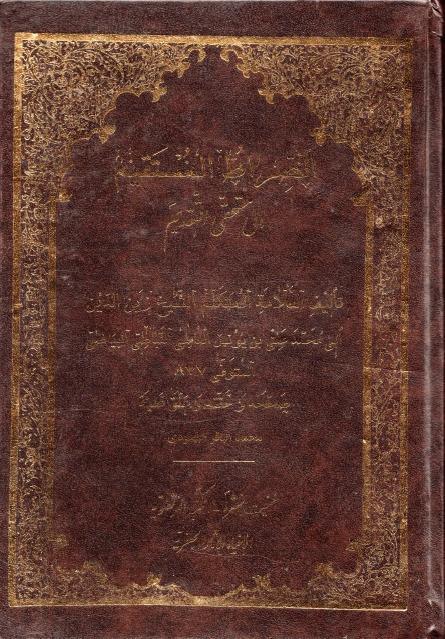 الصراط المستقيم
إلى مستحقي التقديم
تأليف العلامة المتكلم الشيخ زين الدين
أبي محمد علي بن يونس العاملي النباطي البياضي
المتوفى ٨٧٧
صححه وحققه وعلق عليه
محمد الباقر البهبودي